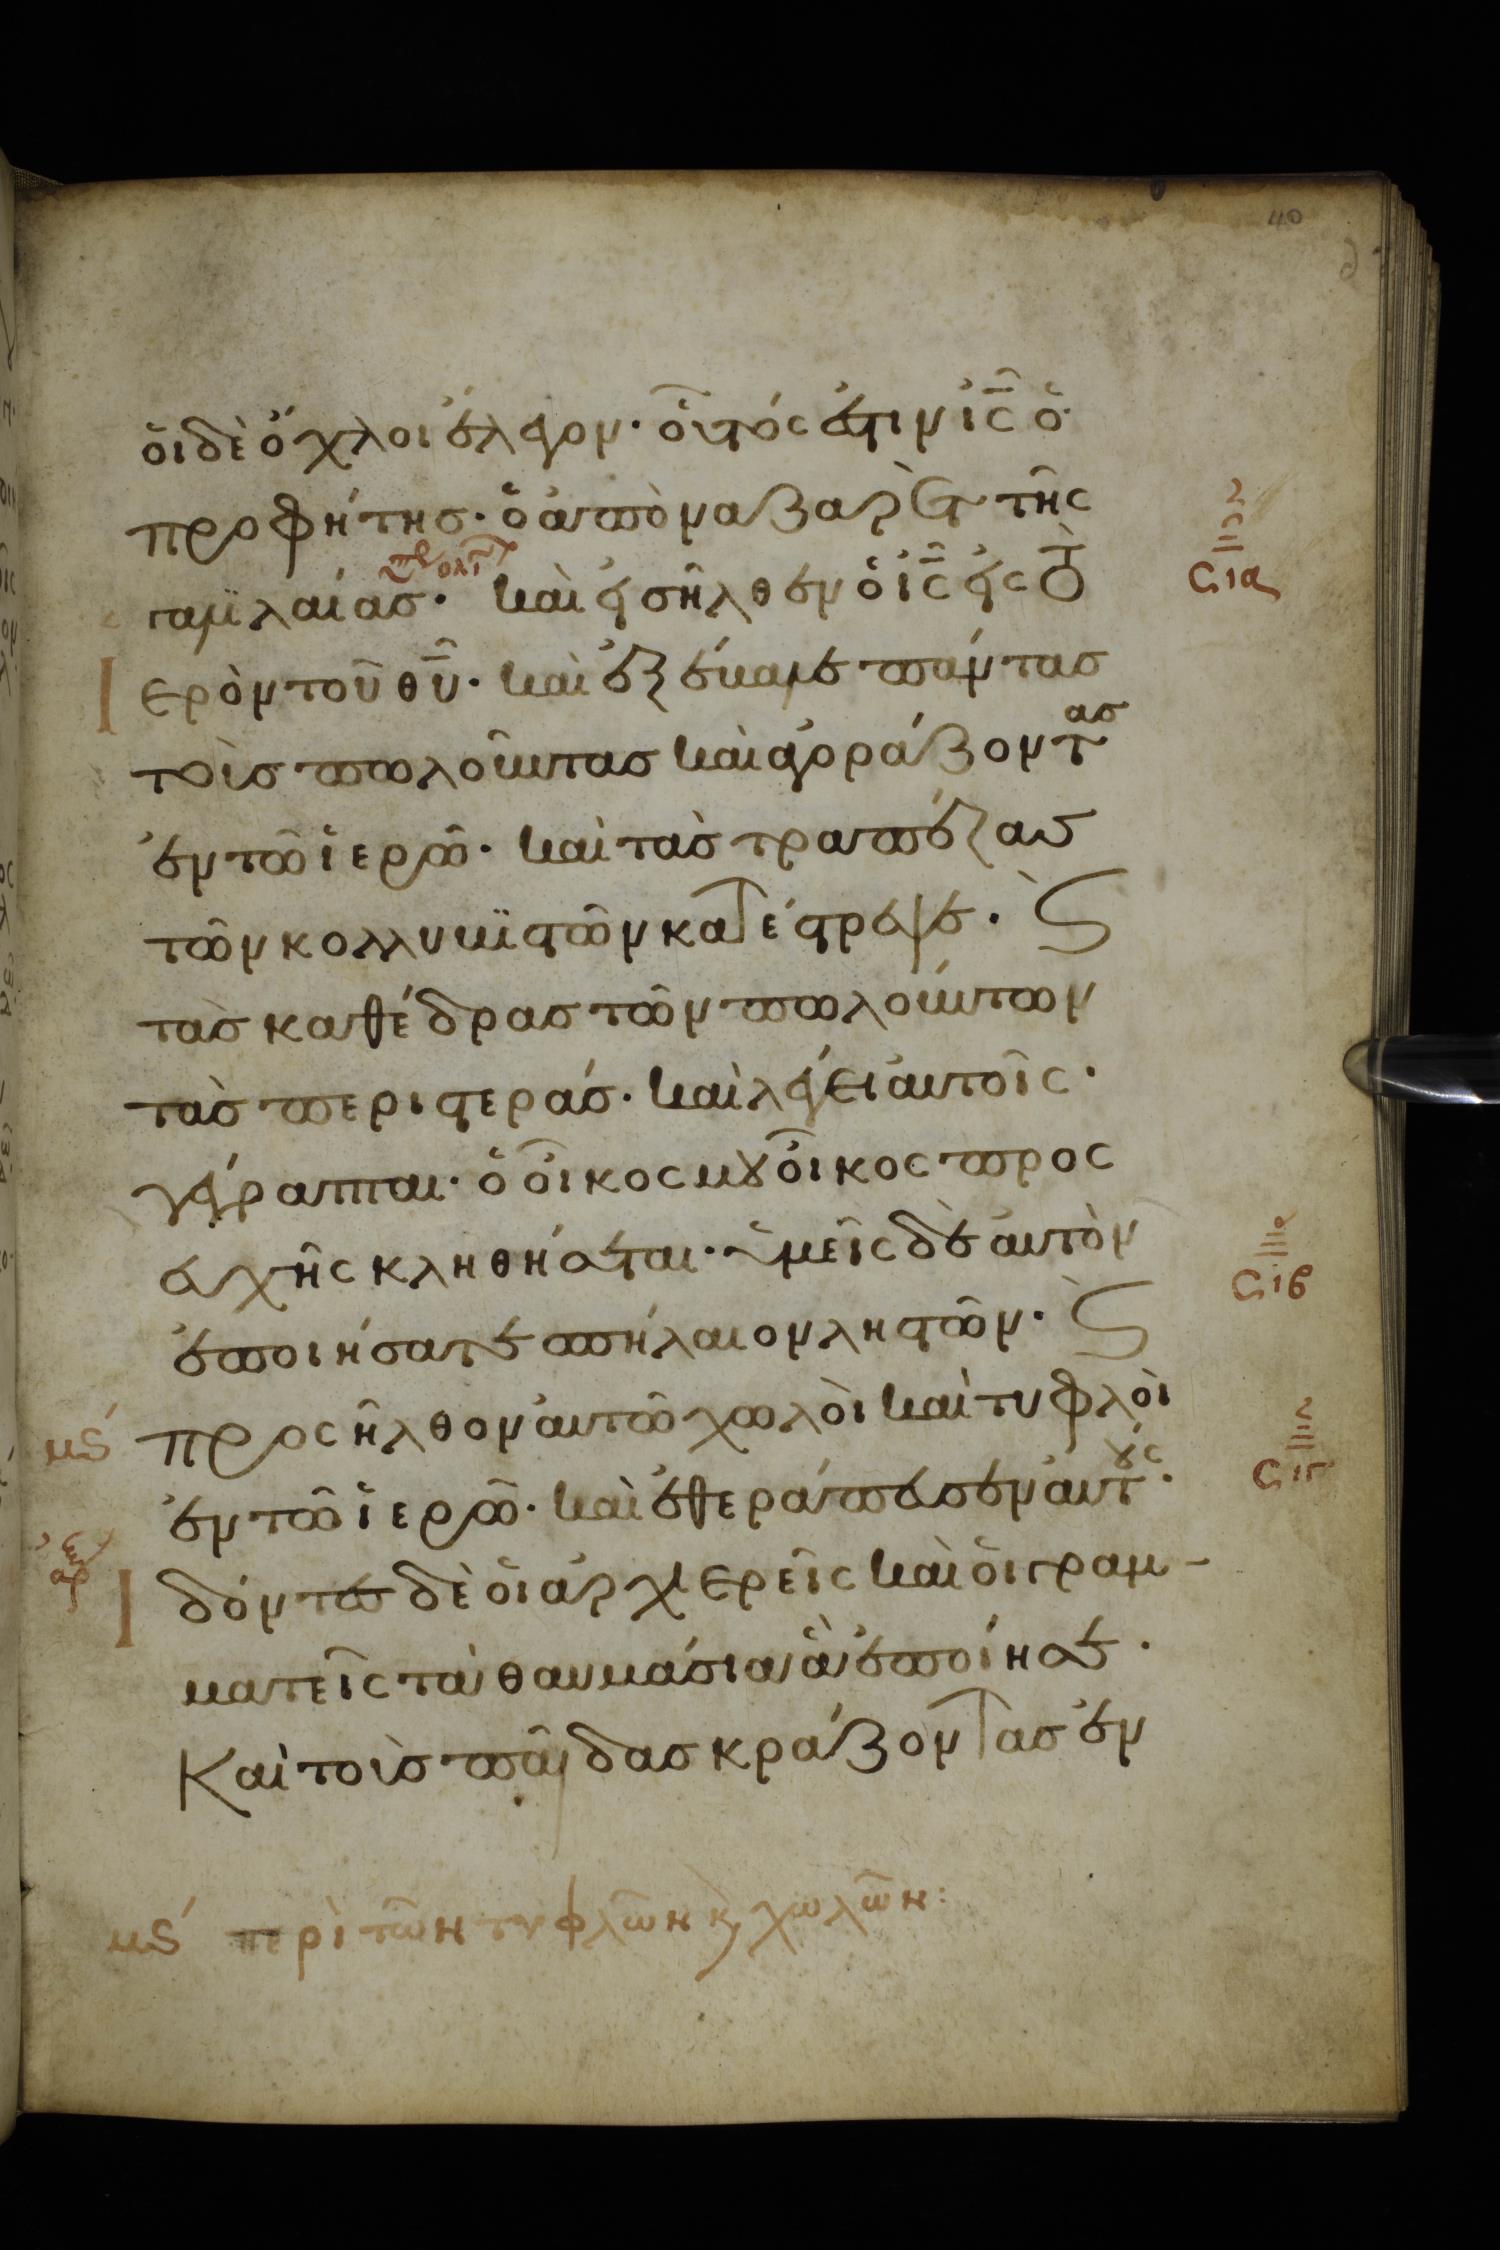 40
ὁι δὲ ὄχλοι ἔλεγον· οὗτός ἐστιν ι̅ς̅ ὁ
προφήτησ· ὁ ἀπὸ ναζαρὲτ τῆς
γαλϊλαίασ· καὶ εἰσῆλθεν ὁ ι̅ς̅ εἰς τὸ
Ϊερὸν τοῦ θ̅υ̅· καὶ ἐξέβαλε πάντασ
τοὺσ πωλοῦντασ καὶ ἀγοράζοντασ
ἐν τῶ ἱερῶ· καὶ τὰσ τραπέζασ
τῶν κολλυβϊστῶν κατέστρεψε· ϛ̀
τὰσ καθέδρασ τῶν πωλούντων
τὰσ περιστεράσ· καὶ λέγει αὐτοῖς·
γέγραπται· ὁ οἶκος μου οἶκος προς
ευχῆς κληθήσεται· ὑμεῖς δὲ ἀυτὸν
ἐποιήσατε σπήλαιον ληστῶν· ϛ̀
μϛʹ προςῆλθον ἀυτῶ χωλὸι καὶ τυφλὸι
ἐν τῶ ἱερῶ· καὶ ἐθεράπευσεν ἀυτούς·
Ϊδόντεσ δὲ ὁι ἀρχιερεῖς καὶ ὁι γραμ-
ματεῖς τὰ θαυμάσια ἃ ἐποίησε·
Καὶ τοὺσ παῖδασ κράζοντασ ἐν
σια
σιβ
σιγ
αρ
μϛʹ περὶ τῶν τυφλῶν κ̀ χωλῶν: